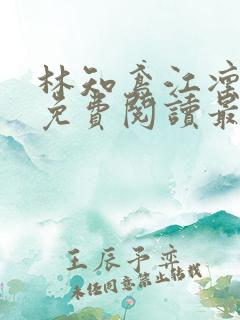 林知鳶江澐
免費閱讀最
王辰予奕
未经同意禁止转载